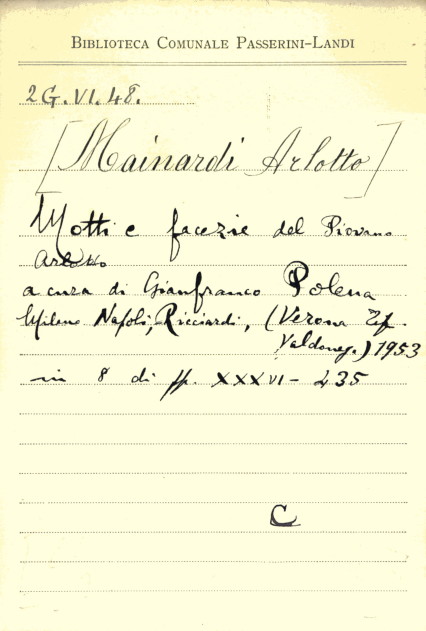 BIBLIOTECA COMUNALE PASSERINI-LANDI
2G.VI.48.
[Mainardi Arlotto]
Motti e facezie del Piovano
Arlotto
a cura di Gianfranco Polena
Milano Napoli, Ricciardi, (Verona Tip.
Valdoneg.) 1953
in 8 di pp. XXXVI - 435
C